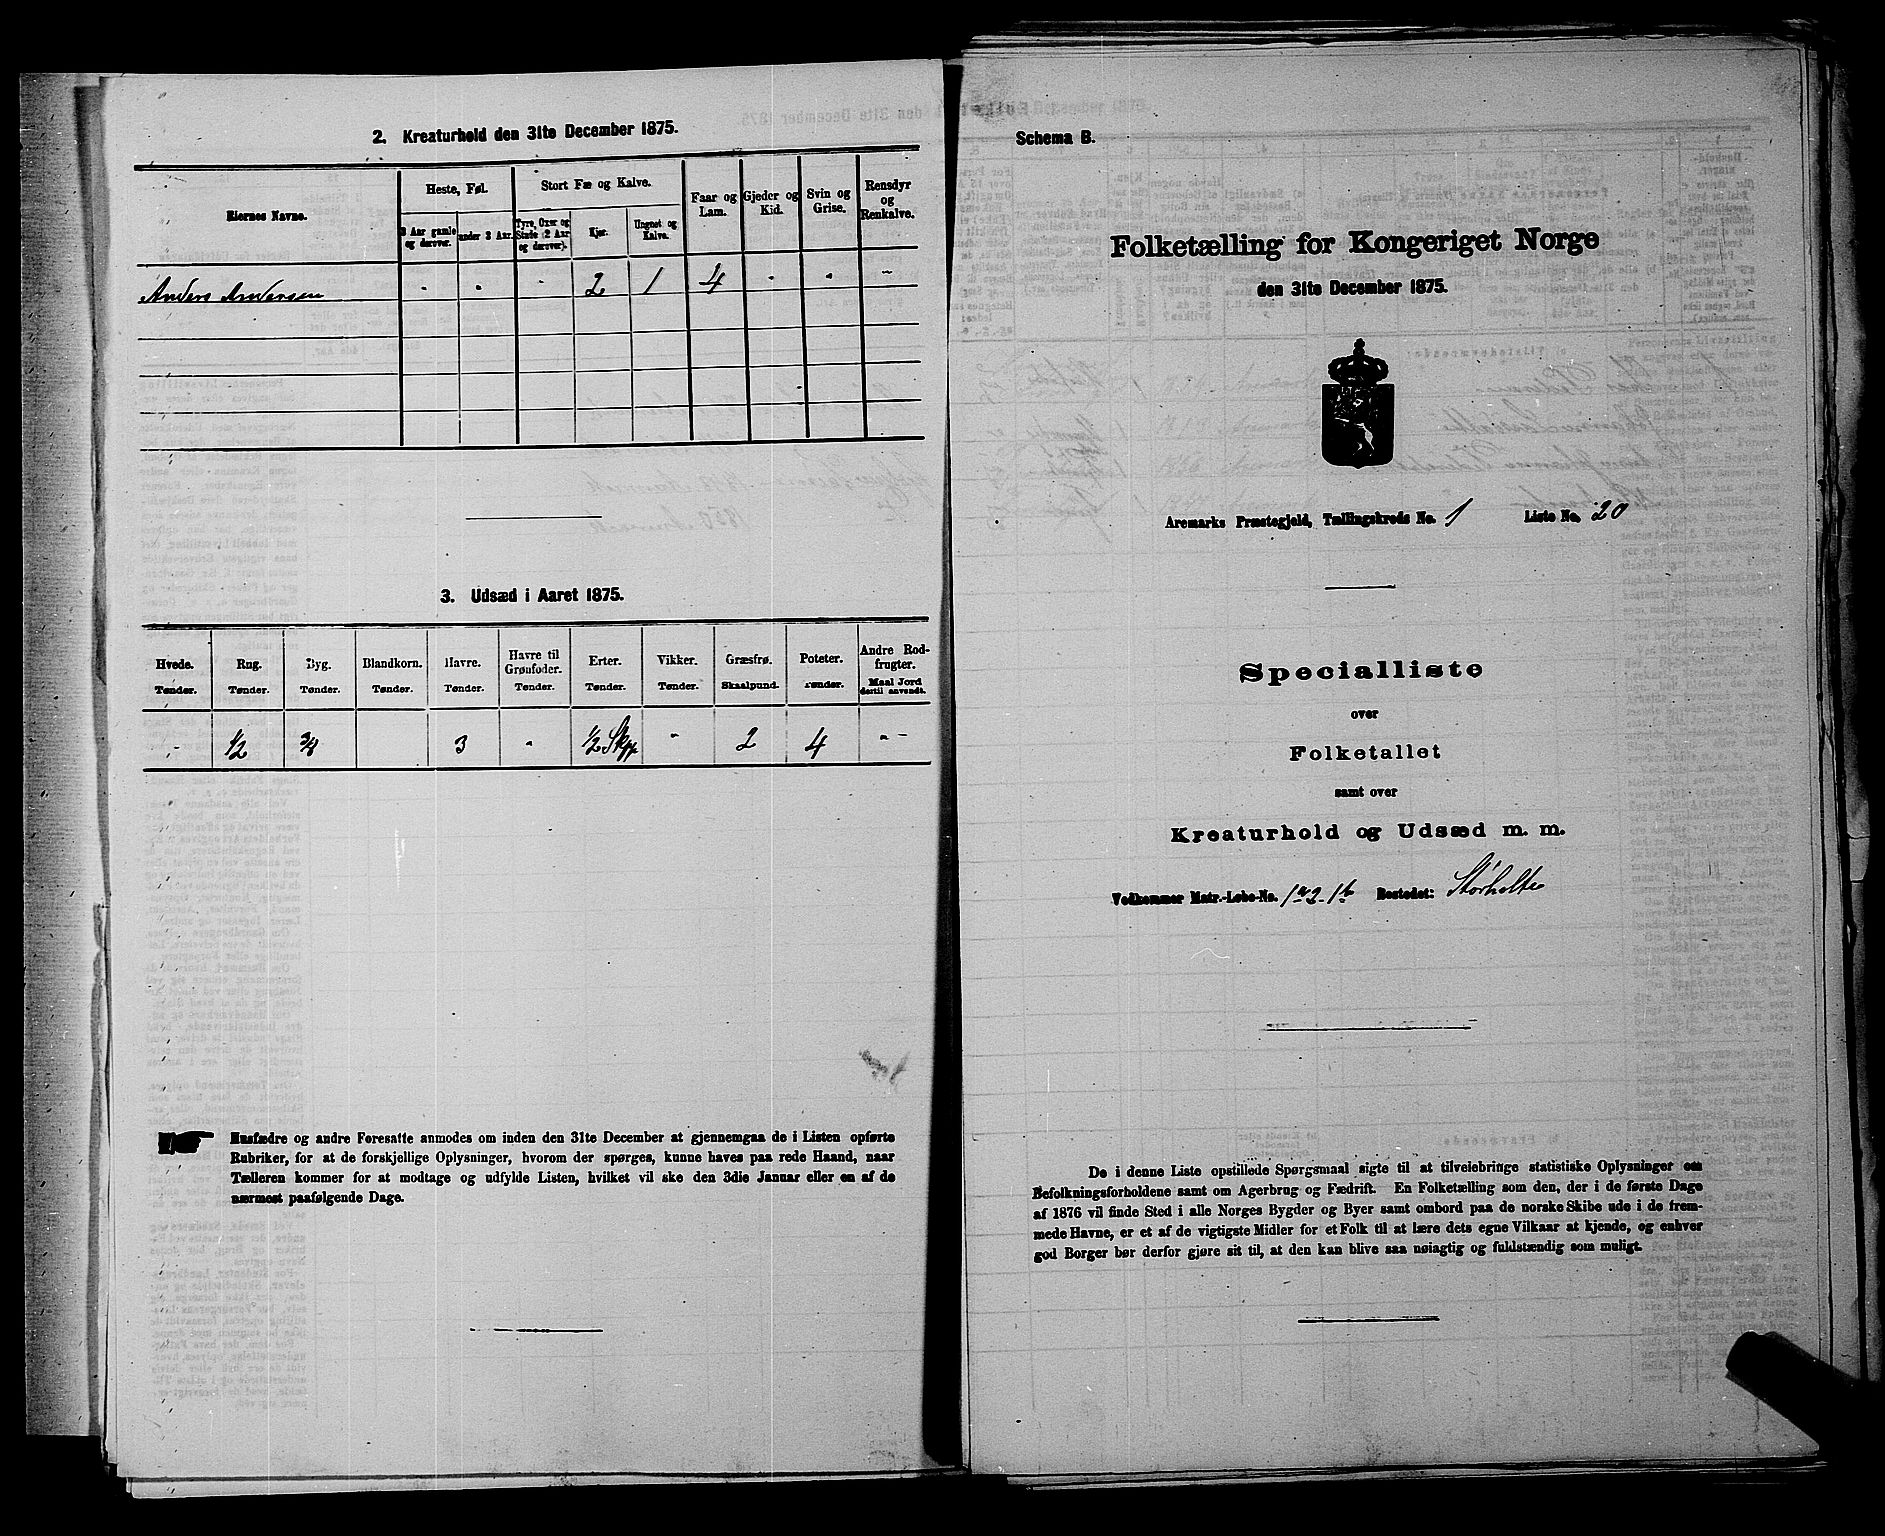 2. Kreaturhold den 31te December 1875.
Eiernes Navne.
Heste, Føl.
Stort Fæ og Kalve.
Faar og Lam.
Gjeder og Kid.
Svin og Grise.
Rensdyr og Renkalve.
3 Aar gamle og derover.
under 3 Aar.
Tyre, Oxer og Stude (2 Aar og derover).
Kjør.
Ungnet og Kalve.
Anders Andersen - - - 2 1 4 - - -
3. Udsæd i Aaret 1875.
Hvede. Rug. Byg. Blandkorn. Havre. Havre til Grønfoder. Erter. Vikker. Græsfrø. Poteter. Andre Rodfrugter.
Tønder. Tønder. Tønder. Tønder. Tønder. Tønder. Tønder. Tønder. Skaalpund. Tønder. Maal Jord dertil anvendt.
- 1/2 3/8 3 - 1/2 Skpp - 2 4 - -
Husfædre og andre Foresatte anmodes om inden den 31te December at gjennemgaa de i Listen opførte
Rubriker, for at de forskjellige Oplysninger, hvorom der spørges, kunne haves paa rede Haand, naar
Tælleren kommer for at modtage og udfylde Listen, hvilket vil ske den 3die Januar eller en af de
nærmest paafølgende Dage.
Schema B.
Folketælling for Kongeriget Norge
den 31te December 1875.
Aremarks Præstegjeld, Tællingskreds No. 1 Liste No. 20
Specialliste
over
Folketallet
samt over
Kreaturhold og Udsæd m. m.
Vedkommer Matr.-Løbe-No. Bostedet: Storholte
De i denne Liste opstillede Spørgsmaal sigte til at tilveiebringe statistiske Oplysninger om
Befolkningsforholdene samt om Agerbrug og Fædrift. En Folketælling som den, der i de første Dage
af 1876 vil finde Sted i alle Norges Bygder og Byer samt ombord paa de norske Skibe ude i de frem-
mede Havne, er et af de vigtigste Midler for et Folk til at lære dets egne Vilkaar at kjende, og enhver
god Borger bør derfor gjøre sit til, at den kan blive saa nøiagtig og fuldstændig som muligt.